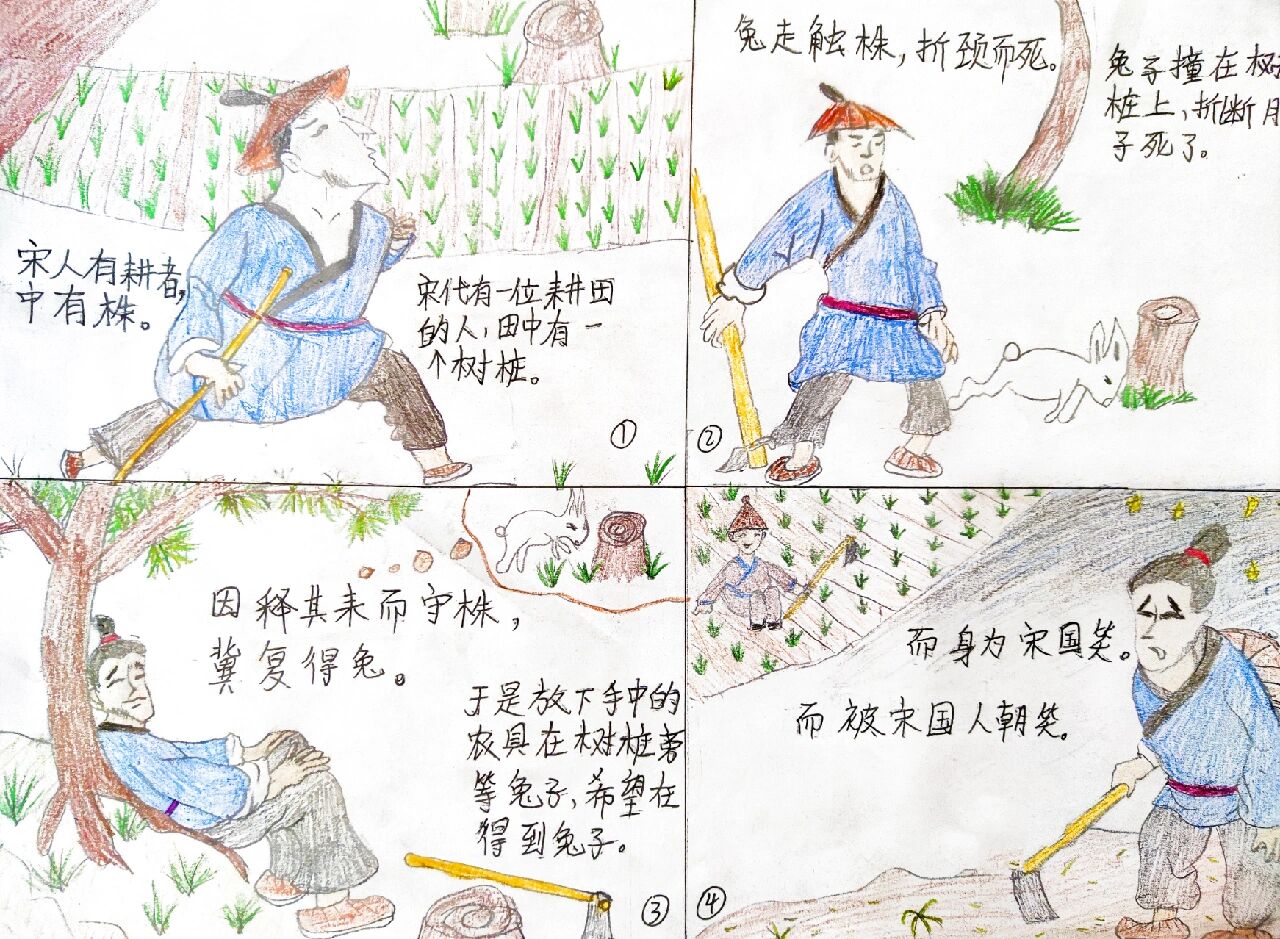 宋人有耕者,
中有株。
宋代有一位耕田
的人,田中有一
个树桩。
①
兔走触株,折颈而死。
兔子撞在树
桩上,折断
子死了。
②
因释其耒而守株,
冀复得兔。
于是放下手中的
农具在树桩旁
等兔子,希望在
得到兔子。
③
而身为宋国笑。
而被宋国人朝笑。
④